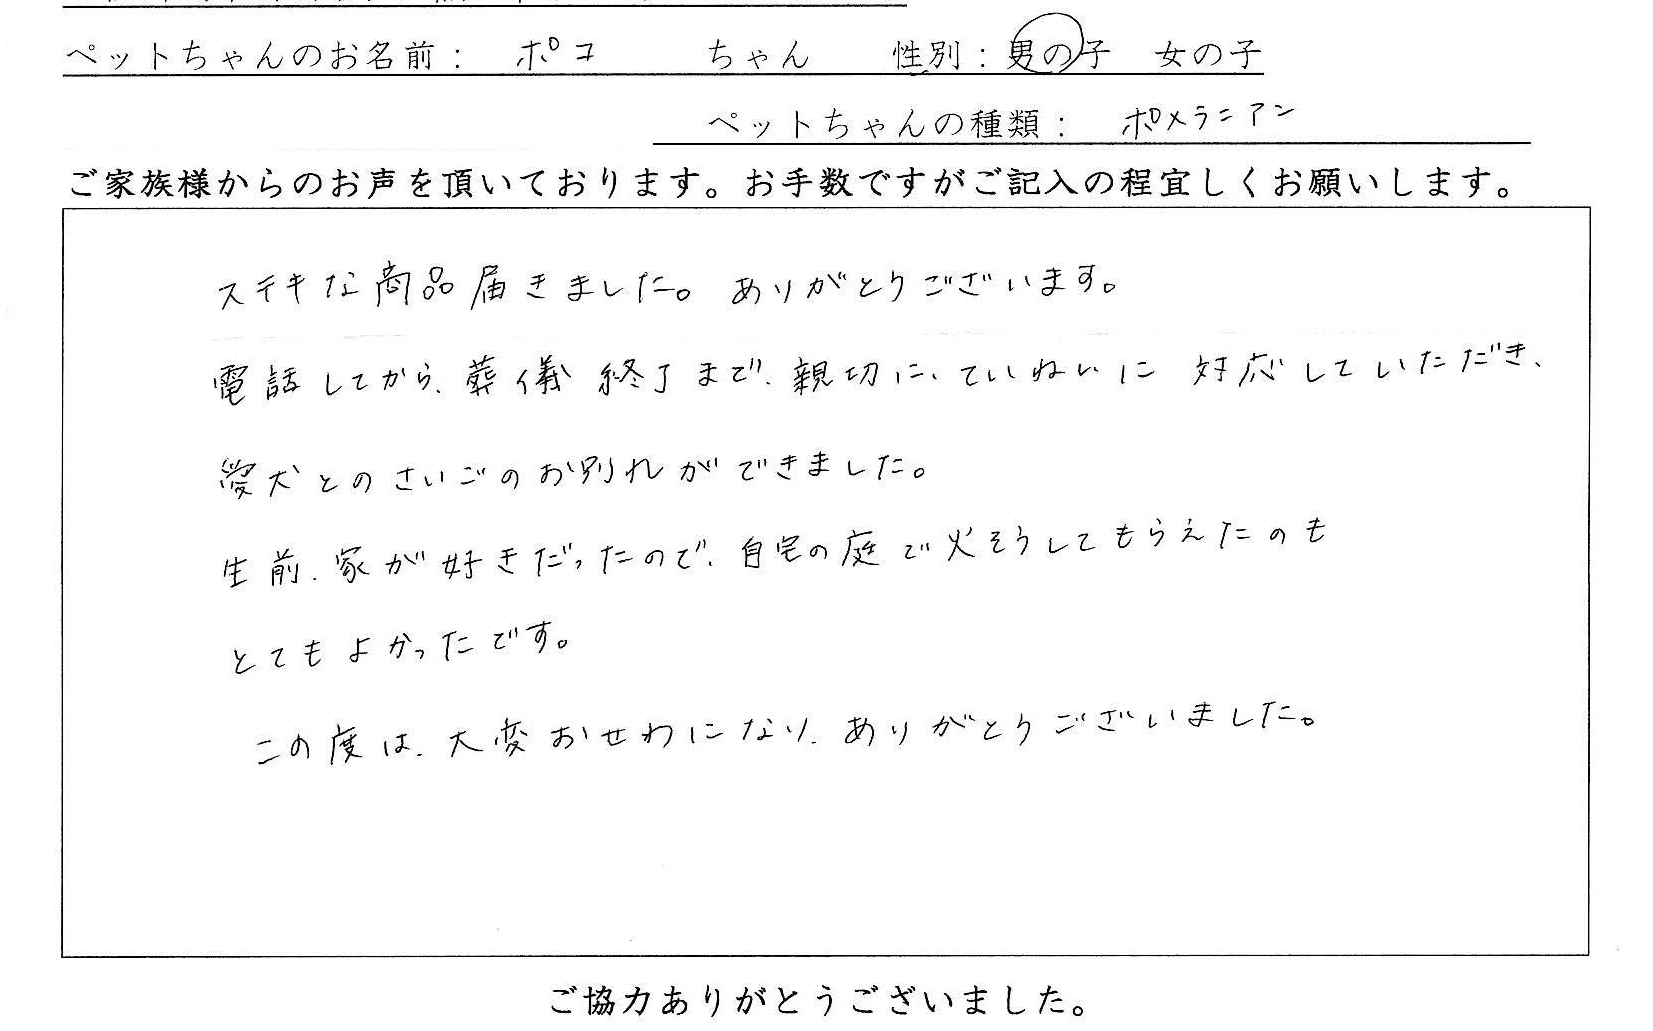 ペットちゃんのお名前： ポコ ちゃん 性別：男の子 女の子
ペットちゃんの種類： ポメラニアン
ご家族様からのお声を頂いております。お手数ですがご記入の程宜しくお願いします。
ステキな商品届きました。ありがとうございます。
電話してから、葬儀終了まで、親切に、ていねいに対応していただき、
愛犬とのさいごのお別れができました。
生前、家が好きだったので、自宅の庭で火そうしてもらえたのも
とてもよかったです。
この度は、大変おせわになり、ありがとうございました。
ご協力ありがとうございました。